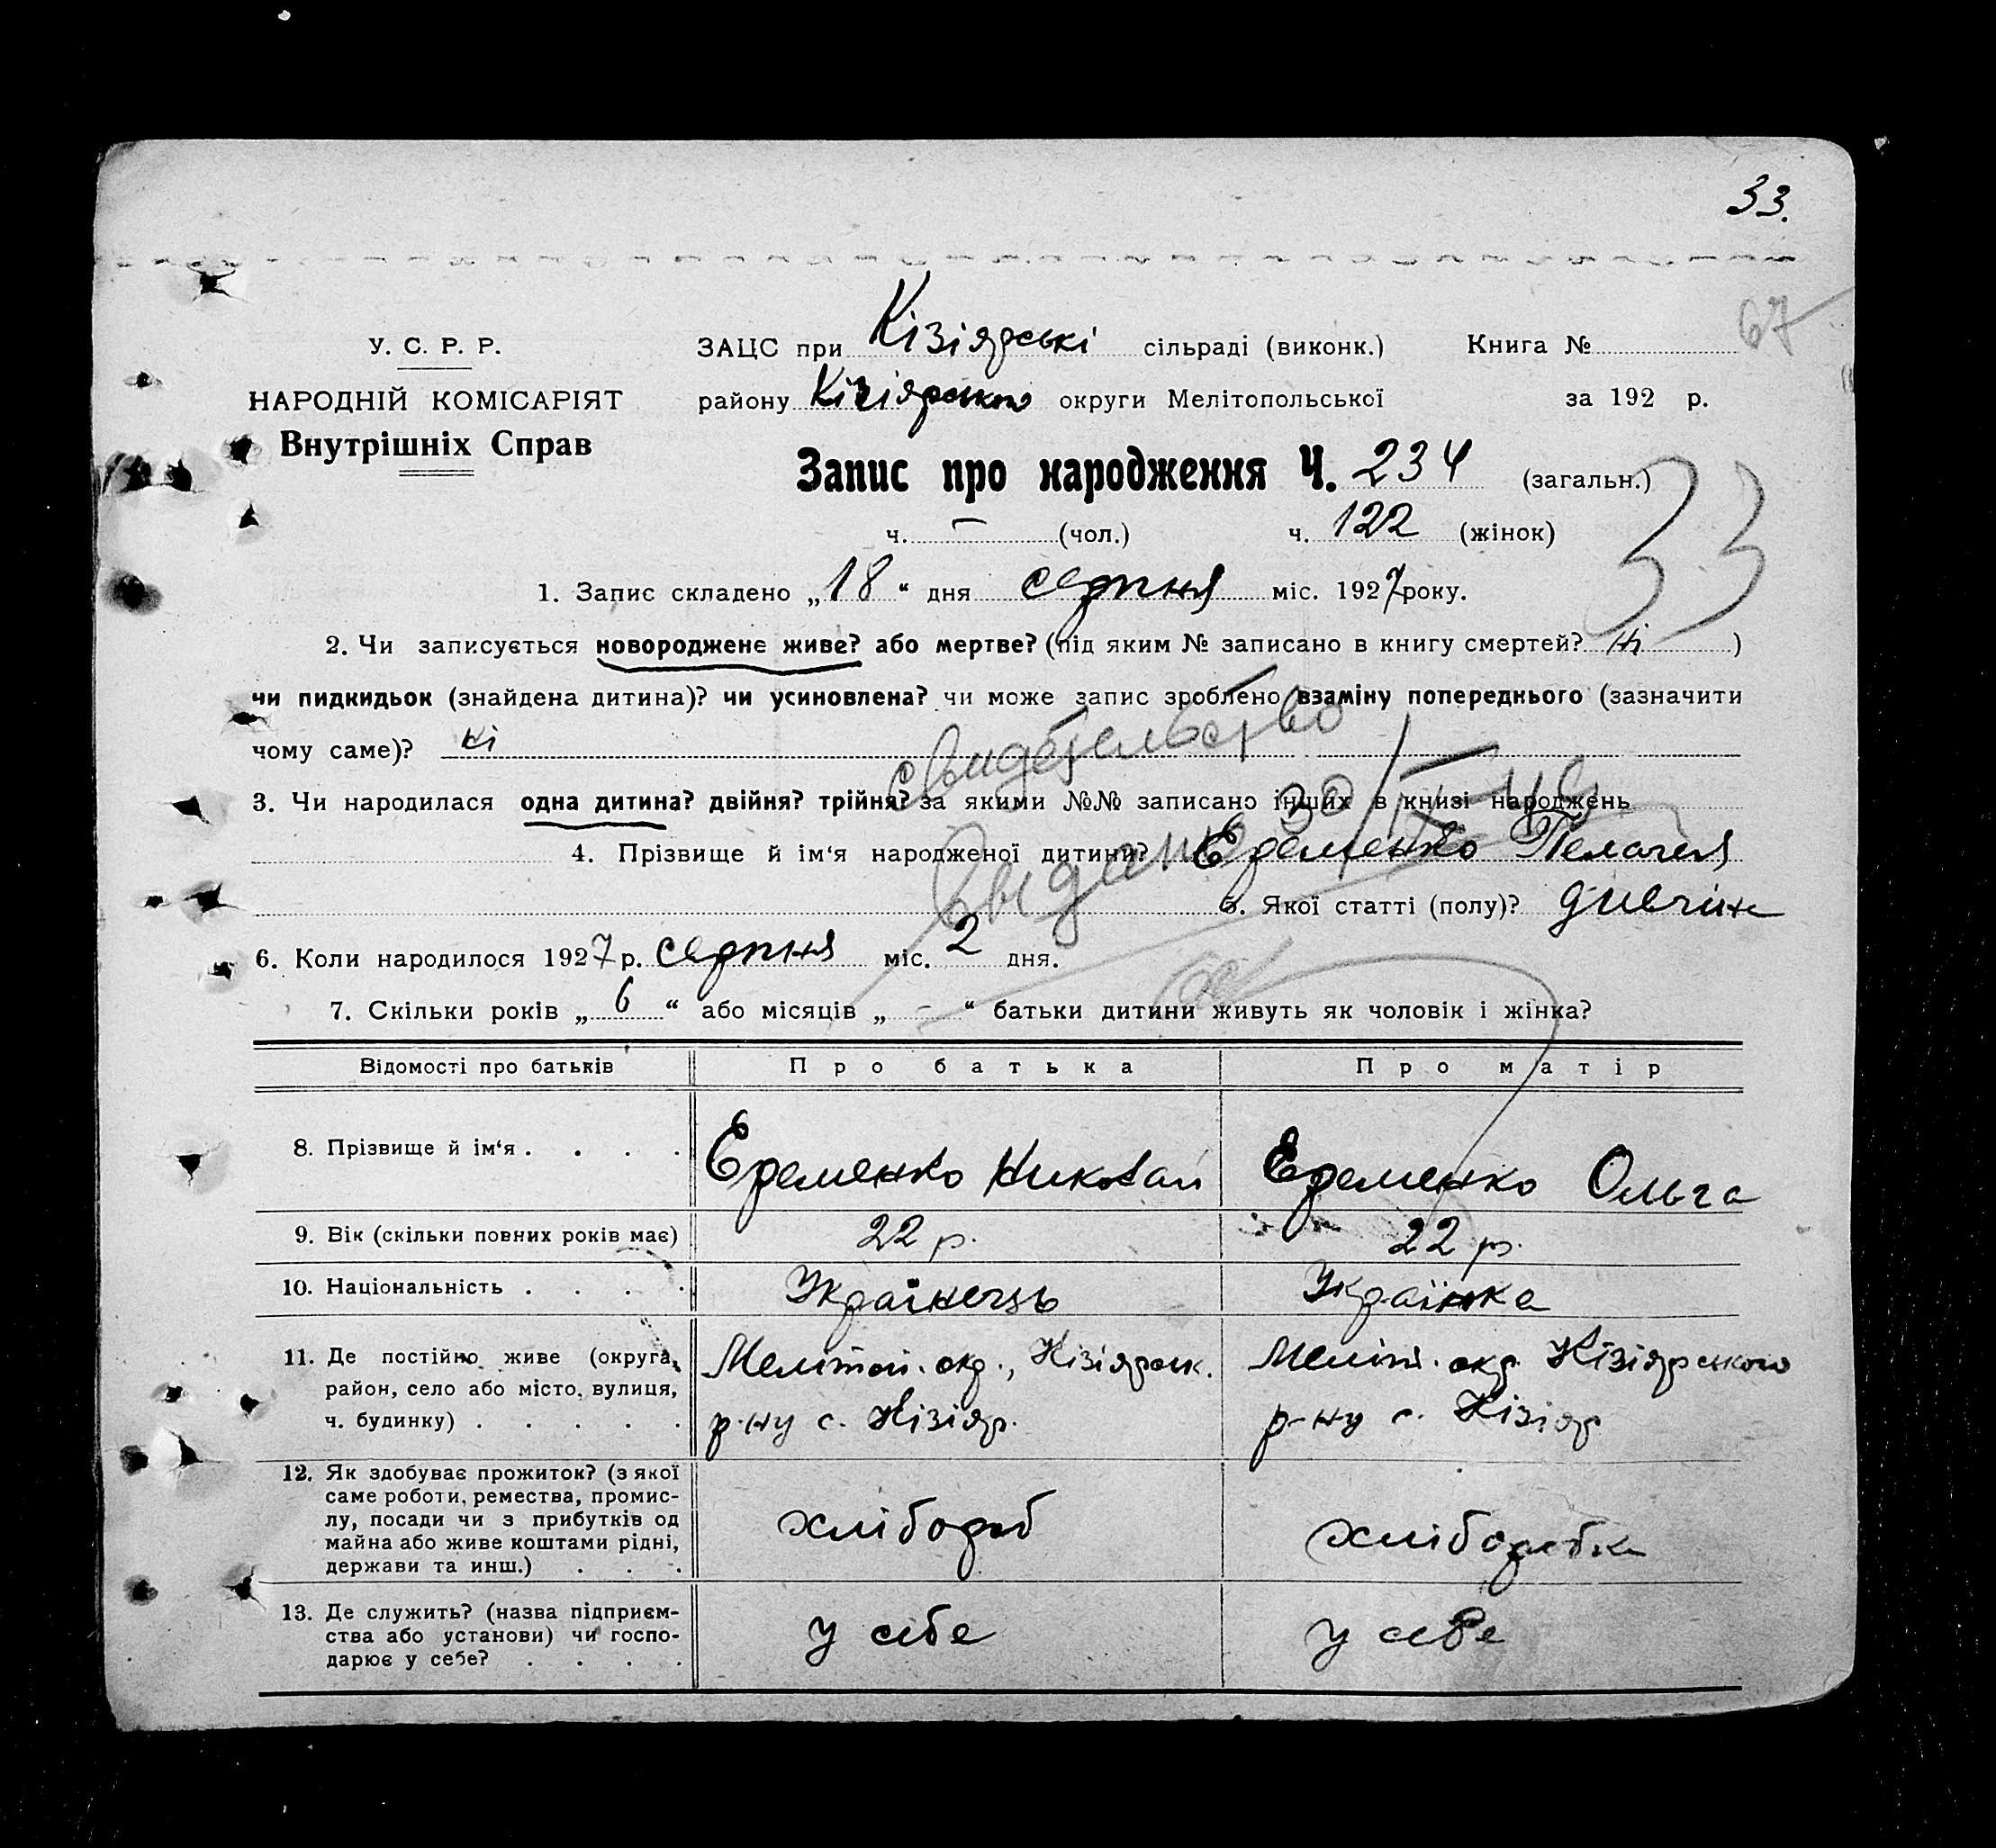 33.
67
У. С. Р. Р.
НАРОДНІЙ КОМІСАРІЯТ
Внутрішніх Справ
ЗАЦС при Кізіярські сільраді (виконк.) Книга №
району Кізіярського округи Мелітопольської за 192 р.
Запис про народження Ч. 234 (загальн.)
ч. — (чол.) ч. 122 (жінок)
33
1. Запис складено „18“ дня серпня міс. 1927 року.
2. Чи записується новороджене живе? або мертве? (під яким № записано в книгу смертей? ні )
чи пидкидьок (знайдена дитина)? чи усиновлена? чи може запис зроблено взаміну попереднього (зазначити
чому саме)? ні
свидетельство
3. Чи народилася одна дитина? двійня? трійня? за якими №№ записано інших в книзі народжень
4. Прізвище й ім‘я народженої дитини? Еременко Пелагея
5. Якої статті (полу)? дивчин
6. Коли народилося 1927 р. серпня міс. 2 дня.
7. Скільки років „6“ або місяців „-“ батьки дитини живуть як чоловік і жінка?
Відомості про батьків Про батька Про матір
8. Прізвище й ім‘я . . . . Еременко Николай Еременко Ольга
9. Вік (скільки повних років має) 22 р. 22 р.
10. Національність . . . . Українець Українка
11. Де постійно живе (округа, Мелітоп. окр., Кізіярськ. Меліт. окр. Кізіярського
район, село або місто, вулиця, р-ну с. Кізіяр. р-ну с. Кізіяр
ч. будинку) . . . . .
12. Як здобуває прожиток? (з якої
саме роботи, ремества, промис-
лу, посади чи з прибутків од хлібороб хліборобка
майна або живе коштами рідні,
держави та инш.) . . .
13. Де служить? (назва підприєм-
ства або установи) чи госпо- у себе у себе
дарює у себе? . . . .